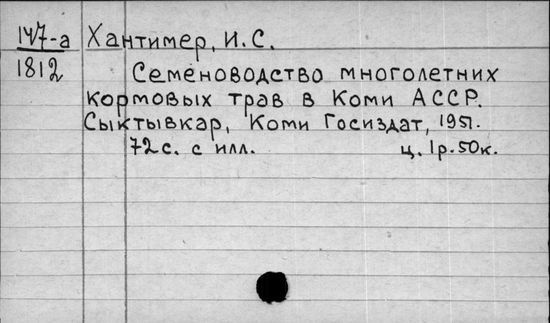 147-а Хантимер, И.С.
1812 Семеноводство многолетних
кормовых трав в Коми АССР.
Сыктывкар, Коми Госиздат, 1951.
72с. с илл. ц. 1р.50к.